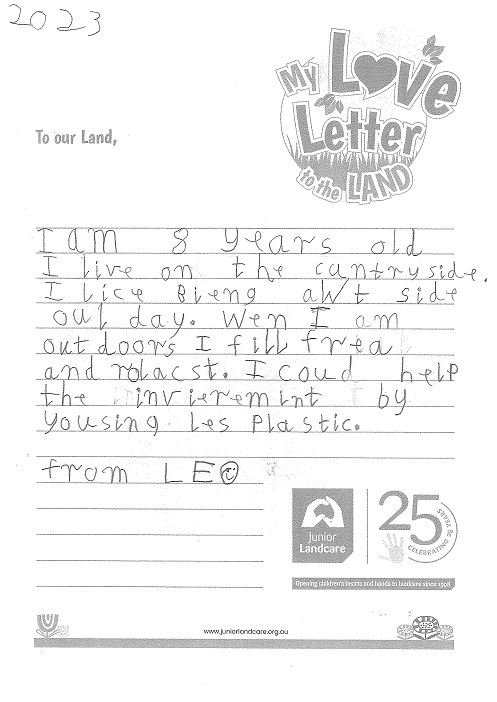 2023
My Love
Letter
to the LAND
To our Land,
I am 8 years old
I live on the cuntryside.
I lice Bieng awt side
oul day. Wen I am
outdoors I fill frea
and rolacst. I coud help
the invierement by
yousing les plastic.
from LEO
Junior
Landcare
25
CELEBRATING 25 YEARS
Opening children's hearts and hands to landcare since 1998
www.juniorlandcare.org.au